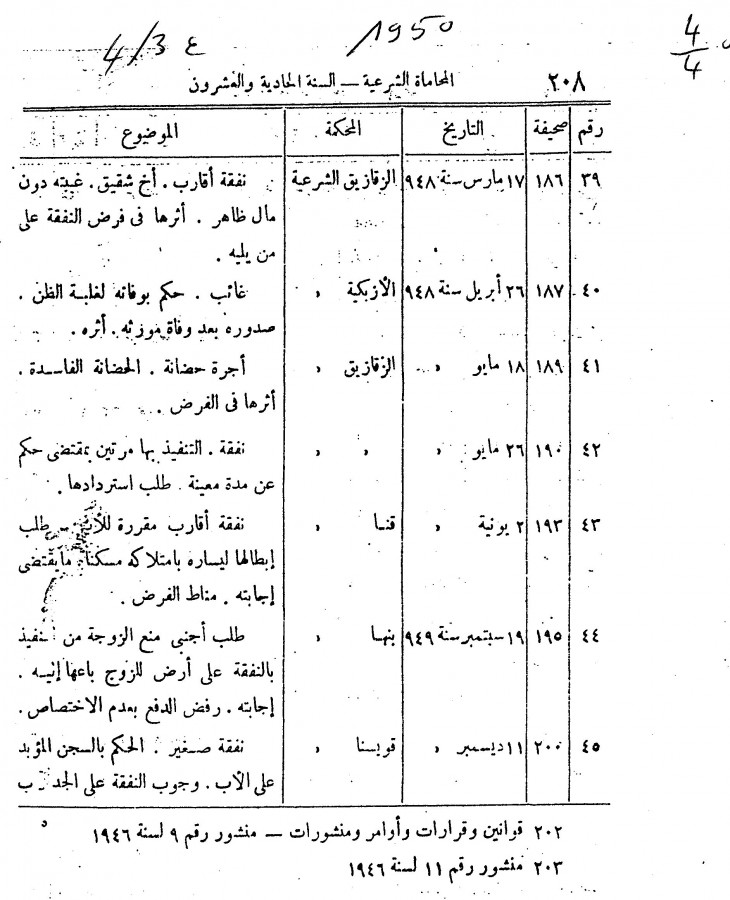 ٤/٣ ع
1950
4/4
المحاماة الشرعية — السنة الحادية والعشرون ٢٠٨
رقم صحيفة التاريخ المحكمة الموضوع
٣٩ ١٨٦ ١٧ مارس سنة ٩٤٨ الزقازيق الشرعية نفقة أقارب . أخ شقيق . غيبته دون
مال ظاهر . أثرها فى فرض النفقة على
من يليه .
٤٠ ١٨٧ ٢٦ أبريل سنة ٩٤٨ الأزبكية » غائب . حكم بوفاته لغلبة الظن .
صدوره بعد وفاة موزثه . أثره .
٤١ ١٨٩ ١٨ مايو » الزقازيق » أجرة حضانة . الحضانة الفاسدة .
أثرها فى الفرض .
٤٢ ١٩٠ ٢٦ مايو » » » نفقة . التنفيذ بها مرتين بمقتضى حكم
عن مدة معينة . طلب استردادها .
٤٣ ١٩٣ ٢ يونية » قنا » نفقة أقارب مقررة طلب
إبطالها ليساره بامتلاكه مسكنا. مايقتضى
إجابته . مناط الفرض .
٤٤ ١٩٥ ١٩ سبتمبر سنة ٩٤٩ بنها » طلب أجنبى منع الزوجة من التنفيذ
بالنفقة على أرض للزوج باعها إليه .
إجابته . رفض الدفع بعدم الاختصاص .
٤٥ ٢٠٠ ١١ ديسمبر » قويسنا » نفقة صغير . الحكم بالسجن المؤبد
على الأب . وجوب النفقة على الجد
٢٠٢ قوانين وقرارات وأوامر ومنشورات — منشور رقم ٩ لسنة ١٩٤٦
٢٠٣ منشور رقم ١١ لسنة ١٩٤٦